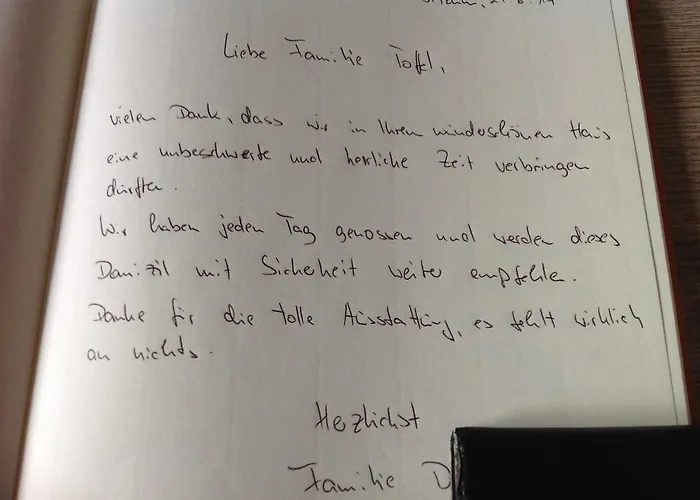 Liebe Familie Toffel,
vielen Dank, dass wir in Ihren wunderschönen Haus
eine unbeschwerte und herrliche Zeit verbringen
durften.
Wir haben jeden Tag genossen und werden dieses
Domizil mit Sicherheit weiter empfehle.
Danke für die tolle Ausstattung, es fehlt wirklich
an nichts.
Herzlichst
Familie D